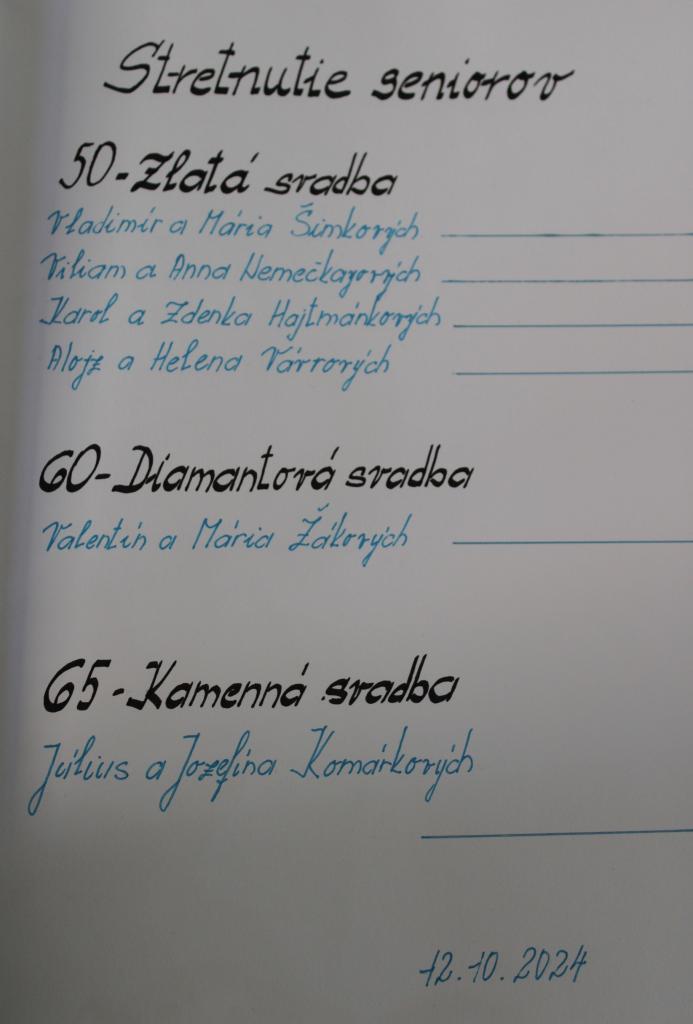 Stretnutie seniorov
50-Zlatá svadba
Vladimír a Mária Šimkových
Viliam a Anna Nemečkayových
Karol a Zdenka Hajtmánkových
Alojz a Helena Várrových
60-Diamantová svadba
Valentín a Mária Žákových
65-Kamenná svadba
Július a Jozefína Komárkových
12.10.2024